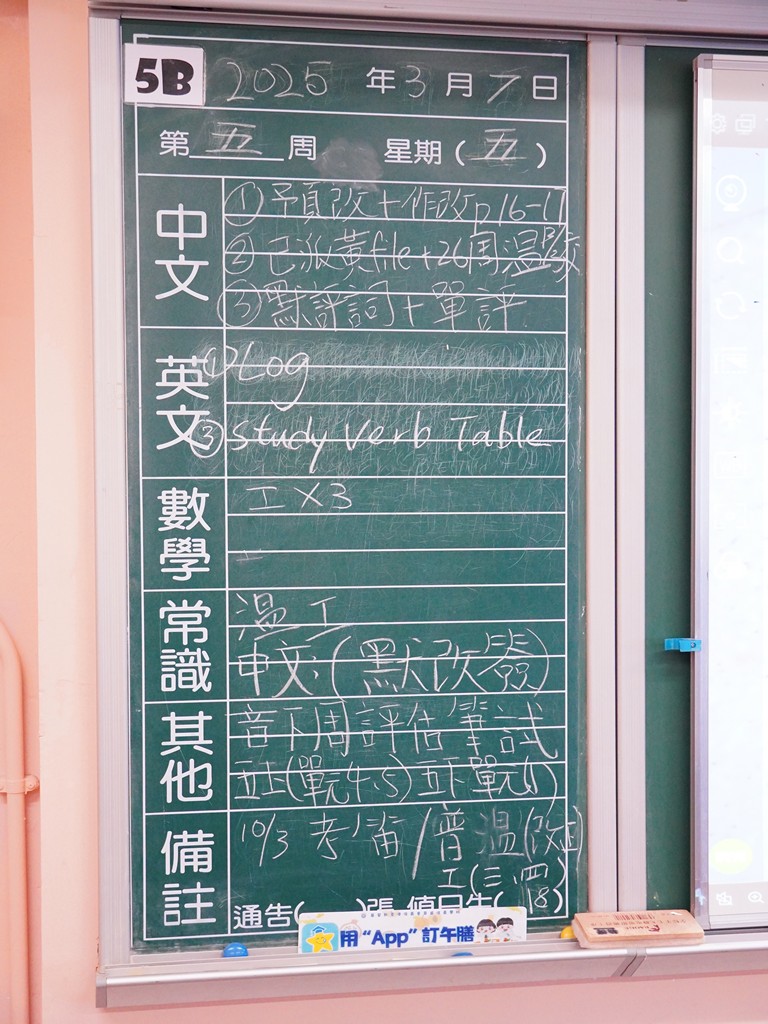 5B 2025 年 3 月 7 日
第 五 周 星期 ( 五 )
中文
①予頁改+作改p.16-17
②已派黃file+26周温
③默評詞+單評
英文
①Log
③Study Verb Table
數學
工×3
常識
温工
中文:(默改簽)
其他
音下周評估筆試
五上(單元4,5)五下單元(1)
備註
10/3 考 / 普温(改正)
工(三,四)
通告( )張 值日生( 18)
用“App”訂午膳